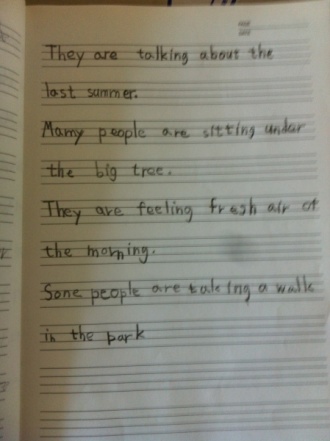 They are talking about the
last summer.
Mamy people are sitting under
the big tree.
They are feeling fresh air of
the morning.
Some people are taking a walk
in the park